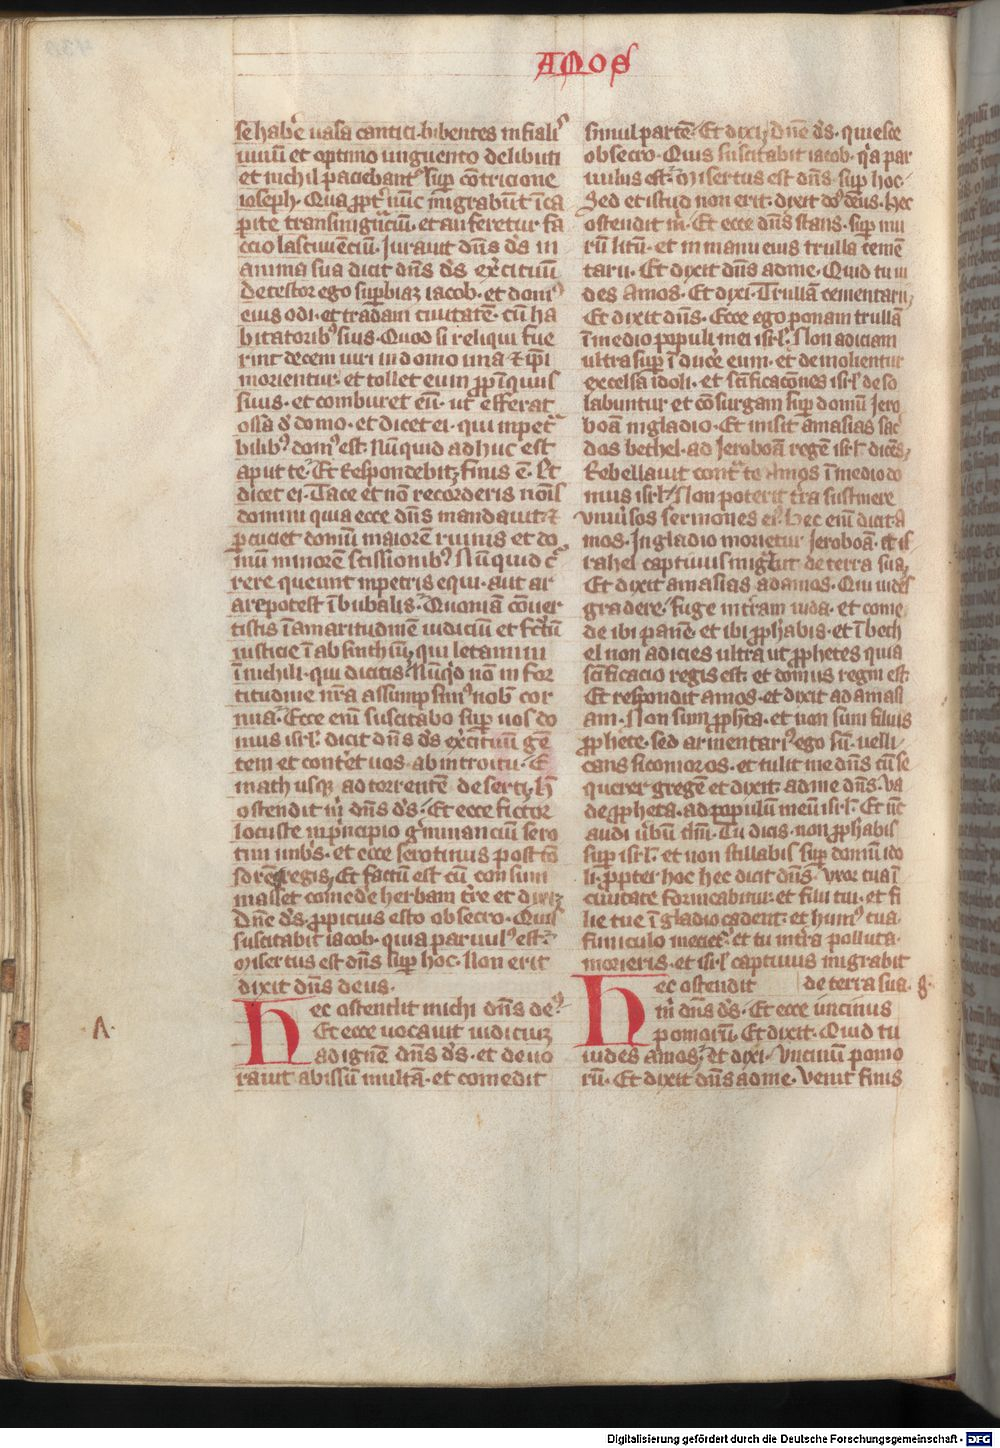 AMOS
se haber̄e uasa cantici· bibentes in fialis
uinū et optimo unguento delibuti
et nichil paciebant᷑ suꝑ cōtricione
ioseph· Qua ꝓpt᷑ nūc migrabūt ī ca
pite transmigr̄ciūm· et auferetur fa
ccio lasciuēciū· Jurauit dn̄s dꝰs in
anima sua dicit dn̄s dꝰs ex͛cituū
Detestor ego suꝑbiaꝫ iacob· et domꝰ
eius odi· et tradam ciuitatē· cū ha
bitatoribꝰ suis· Quod si reliqui fue
rint decem uiri in domo una ⁊ ip̄i
morientur· et tollet eum ꝓpīquus
suus· et comburet eū· ut efferat
ossa d̄ domo· et dicet ei· qui in penet᷑
bilibꝰ domꝰ est· Nūquid adhuc est
aput te· Et Respondebitꝫ finis ē· Et
dicet ei· Tace et nō recorderis nōīs
domini quia ecce dn̄s mandauit· ⁊
ꝑcuciet domū maiorē ruinis et do
mū minorē scissionibꝰ Nūquid cur
rere queunt in petris equi· aut ar
ari potest ī bubalis· Quoniā cōuer
tistis ī amaritudinē iudiciū et fructū
iusticie ī absinthiū, qui letamini
ī nichili· qui dicitis· Nūqd̄ nō in for
titudine nr̄a assumpsimꝰ nob̄ cor
nua· Ecce eni᷑ suscitabo suꝑ uos do
mus isrl̄· dicit dn̄s dꝰs ex͛cituū gē
tem et cont͛et uos· ab introitu· E
math usqꝫ ad torrentē deserti· h̄
ostendit m̄ dn̄s dꝰs· Et ecce fictor
locuste in p̄ncipio germinanciū sero
tini imbrꝰs· et ecce serotinus post tō
sorē regis· Et factū est cū consum
masset comede herbam t͛re et dixiꝫ
Dn̄e dꝰs ꝓpicius esto obsecro· Quis
suscitabit iacob· quia paruulꝰ est·
Misertus est dn̄s suꝑ hoc· Non erit
dixit dn̄s deus·
Hec ostendit michi dn̄s deꝰ·
Et ecce uocauit iudiciuꝫ
ad ignē dn̄s dꝰs· et deuo
A·
rauit abissū multā· et comedit
simul partē· Et dixi, dn̄e dꝰs· quiesce
obsecro· Quis suscitabit iacob· qꝛa par
uulus est· Misertus est dn̄s suꝑ hoc·
Sed et istud non erit· dixit dꝰs deus· Hec
ostendit m̄· Et ecce dn̄s stans· suꝑ mu
rū litū· et in manu eius trulla cemē
tarii· Et dixit dn̄s ad me· Quid tu ui
des Amos· Et dixi· Trullā cementarii
Et dixit dn̄s· Ecce ego ponam trullā
ī medio populi mei isrl̄· Non adiciam
ultra suꝑ īducere eum· et demolientur
excelsa īdoli· et sctificacōnes isrl̄ deso
labuntur et cōsurgam suꝑ domū Jero
boā in gladio· Et misit amasias sac͛
dos bethel· ad Jeroboā regē isrl̄ dicēs
Rebellauit cont᷑ te Amos ī medio do
mus isrl̄· Non poterit t͛ra sustinere
vniu͛sos sermones eiꝰ· Hec eni᷑ dicit A
mos· In gladio morietur Jeroboā· et is
rahel captiuus migᷓbit de terra sua,
Et dixit amasias ad amos· Qui uides
gradere· fuge in t͛ram iuda· et come
de ibi panē· et ibi ꝓphetabis· et ī beth
el non adicies ultra ut ꝓphetes quia
sctificacio regis est· et domus regni est·
Et respondit amos· et dixit ad amasi
am· Non sum ꝓpheta· et non sum filius
ꝓphete· sed armentariꝰ ego sū· uelli
cans sicomoros· et tulit me dn̄s cū se
querer gregē et dixit· ad me dn̄s· Va
de ꝓpheta· ad populū meū isrl̄· Et nūc
audi u͛bū dn̄i· Tu dicis· non ꝓphabis
suꝑ isrl̄· et non stillabis suꝑ domū ido
li· propter hoc hec dicit dn̄s· Vxor tua ī
ciuitate fornicabitur· et filii tui· et fi
lie tue ī gladio cadent· et humꝰ tua
funiculo meciet᷑· et tu in t͛ra polluta·
morieris· et isrl̄ captiuus migrabit
de terra sua· 8·
Hec ostendit
m̄ dn̄s dꝰs· Et ecce uncinus
pomorū· Et dixit· Quid tu
uides amos· et dixi· Vncinū pomo
rū· Et dixit dn̄s ad me· Venit finis
Digitalisierung gefördert durch die Deutsche Forschungsgemeinschaft - DFG